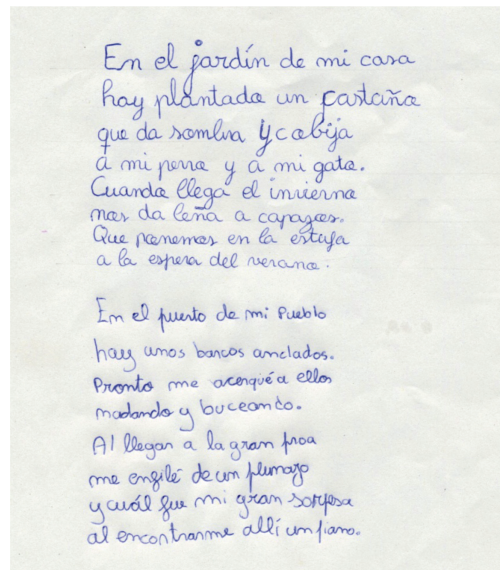 En el jardín de mi casa
hay plantado un castaño
que da sombra y cobija
a mi perro y a mi gato.
Cuando llega el invierno
nos da leña a capazos.
Que ponemos en la estufa
a la espera del verano.
En el puerto de mi Pueblo
hay unos barcos anclados.
Pronto me acerqué a ellos
nadando y buceando.
Al llegar a la gran proa
me enfilé de un plumazo
y cuál fue mi gran sorpresa
al encontrarme allí un piano.